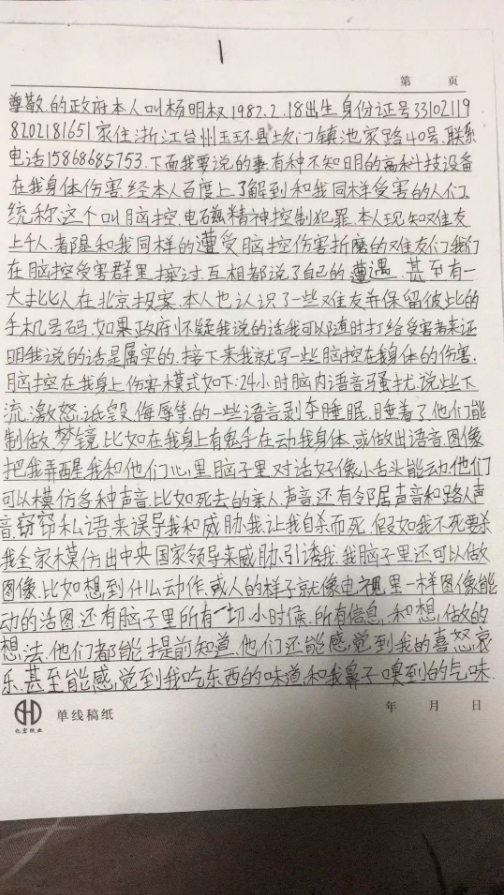 1
第 页
尊敬的政府本人叫杨明权1982.2.18出生身份证号33102119
8202181651家住浙江台州玉环县坎门镇池家路40号.联系
电话15868685753.下面我要说的是有种不知明的高科技设备
在我身体伤害经本人百度上了解到和我同样受害的人们.
统称这个叫脑控.电磁精神控制犯罪.本人现知难友
上千人.都是和我同样的遭受脑控伤害折磨的难友们我们
在脑控受害群里探讨互相都说了自己的遭遇.甚至有一
大批人在北京报案.本人也认识了一些难友并保留彼此的
手机号码如果政府怀疑我说的话我可以随时打给受害者来证
明我说的话是属实的.接下来我就写一些脑控在我身体的伤害.
脑控在我身上伤害模式如下:24小时脑内语音骚扰.说些下
流.激怒.诋毁.侮辱.等的一些语言剥夺睡眠.睡着了他们能
制做.梦镜.比如在我身上有鬼手在动我身体.或做出语音.图像
把我弄醒.我和他们心里脑子里对话好像小舌头能动.他们
可以模仿多种声音.比如死去的亲人.声音.还有邻居声音和路人声
音.窃窃私语来误导我和威胁我.让我自杀而死.假如我不死要杀
我全家模仿出中央国家领导来威胁引诱我.我脑子里还可以做
图像.比如想到什么动作.或人的样子就像电视里一样图像能
动的活图.还有脑子里所有一切.小时候.所有信息.和想.做的
想法.他们都能提前知道.他们还能感觉到我的喜怒哀
乐.甚至能感觉到我吃东西的味道.和我鼻子嗅到的气味.
单线稿纸 年 月 日